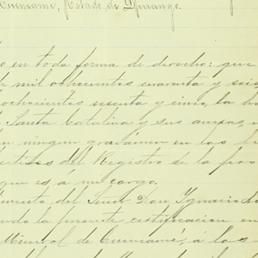 Cuencamé, Estado de Durango.
o en toda forma de derecho: que
de mil ochocientos cuarenta y seis
ochocientos sesenta y cinco, la ha
Santa Catalina y sus anexas, n
en ningun gravámen en los l
artidas del Registro de la pro
que es á mi cargo.
umento del Señor Don Ygnacio
endo la presente certificacion en
Mineral de Cuencamé, á los